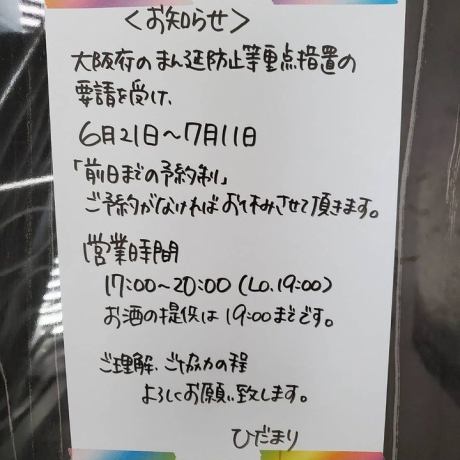 ＜お知らせ＞
大阪府のまん延防止等重点措置の
要請を受け、
6月21日〜7月11日
「前日までの予約制」
ご予約がなければお休みさせて頂きます。
営業時間
17:00〜20:00(L.O.19:00)
お酒の提供は19:00までです。
ご理解、ご協力の程
よろしくお願い致します。
ひだまり